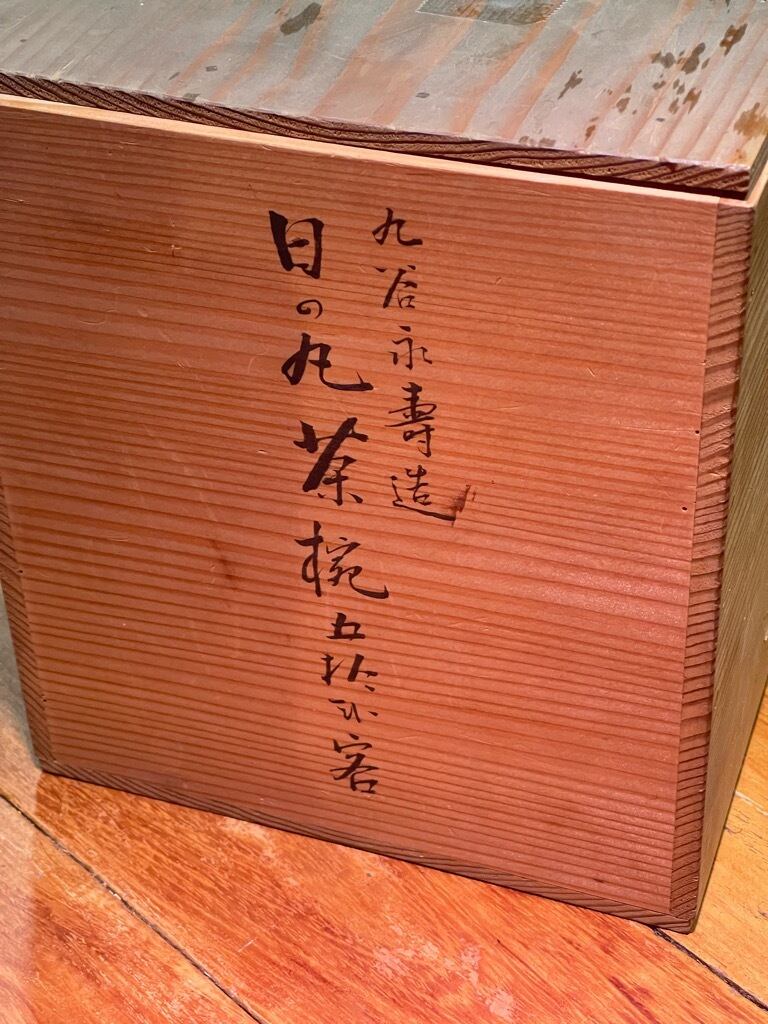 九谷永壽造
日の丸茶椀五拾弐客